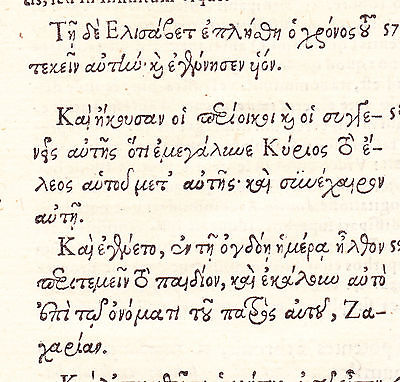 Τῇ δὲ Ελισάβετ ἐπλήσθη ὁ χρόνος τοῦ 57
τεκεῖν αὐτὴν, καὶ ἐγέννησεν υἱόν.
Καὶ ἤκουσαν οἱ περίοικοι καὶ οἱ συγγε- 58
νεῖς αὐτῆς ὅτι ἐμεγάλυνε Κύριος τὸ ἔ-
λεος αὑτοῦ μετ' αὐτῆς· καὶ συνέχαιρον
αὐτῇ.
Καὶ ἐγένετο, ἐν τῇ ὀγδόῃ ἡμέρᾳ ἦλθον 59
περιτεμεῖν τὸ παιδίον, καὶ ἐκάλουν αὐτὸ
ἐπὶ τῷ ὀνόματι τοῦ πατρὸς αὐτοῦ, Ζα-
χαρίαν.